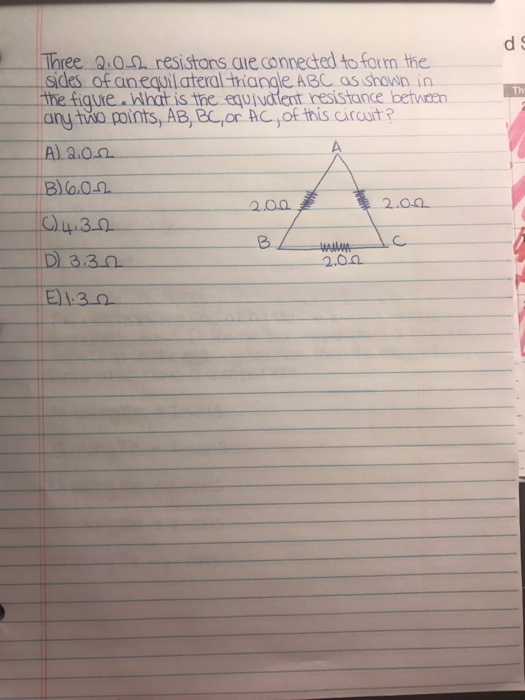 Three 2.0Ω resistors are connected to form the
sides of an equilateral triangle ABC as shown in
the figure. What is the equivalent resistance between
any two points, AB, BC, or AC, of this circuit?
A) 2.0Ω
B) 6.0Ω
C) 4.3Ω
D) 3.3Ω
E) 1.3Ω
A
2.0Ω
2.0Ω
B
C
2.0Ω
d
Th